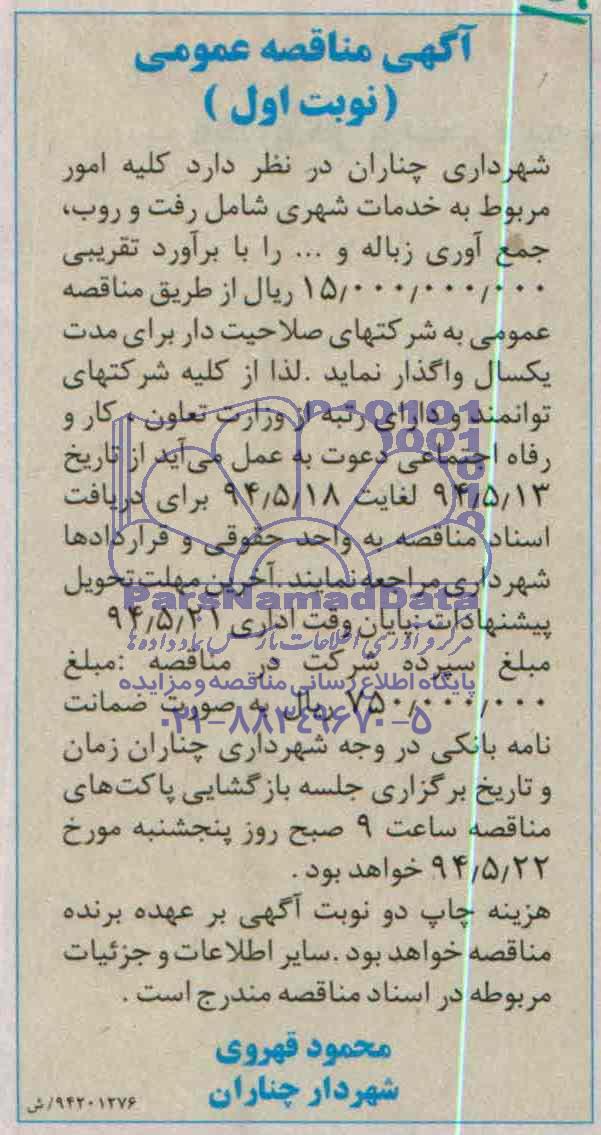 آگهی مناقصه عمومی
(نوبت اول)
شهرداری چناران در نظر دارد کلیه امور
مربوط به خدمات شهری شامل رفت و روب،
جمع آوری زباله و ... را با برآورد تقریبی
۱۵/۰۰۰/۰۰۰/۰۰۰ ریال از طریق مناقصه
عمومی به شرکتهای صلاحیت دار برای مدت
یکسال واگذار نماید .لذا از کلیه شرکتهای
توانمند و دارای رتبه از وزارت تعاون ، کار و
رفاه اجتماعی دعوت به عمل می‌آید از تاریخ
۹۴/۵/۱۳ لغایت ۹۴/۵/۱۸ برای دریافت
اسناد مناقصه به واحد حقوقی و قراردادها
شهرداری مراجعه نمایند .آخرین مهلت تحویل
پیشنهادات :پایان وقت اداری ۹۴/۵/۲۱
مبلغ سپرده شرکت در مناقصه :مبلغ
۷۵۰/۰۰۰/۰۰۰ ریال به صورت ضمانت
نامه بانکی در وجه شهرداری چناران زمان
و تاریخ برگزاری جلسه بازگشایی پاکت‌های
مناقصه ساعت ۹ صبح روز پنجشنبه مورخ
۹۴/۵/۲۲ خواهد بود .
هزینه چاپ دو نوبت آگهی بر عهده برنده
مناقصه خواهد بود .سایر اطلاعات و جزئیات
مربوطه در اسناد مناقصه مندرج است .
محمود قهروی
شهردار چناران
۹۴۲۰۱۲۷۶/ش
ParsNamadData
مرکز فرآوری اطلاعات پارس نماد داده ها
پایگاه اطلاع رسانی مناقصه و مزایده
۰۲۱-۸۸۳۴۹۶۷۰-۵